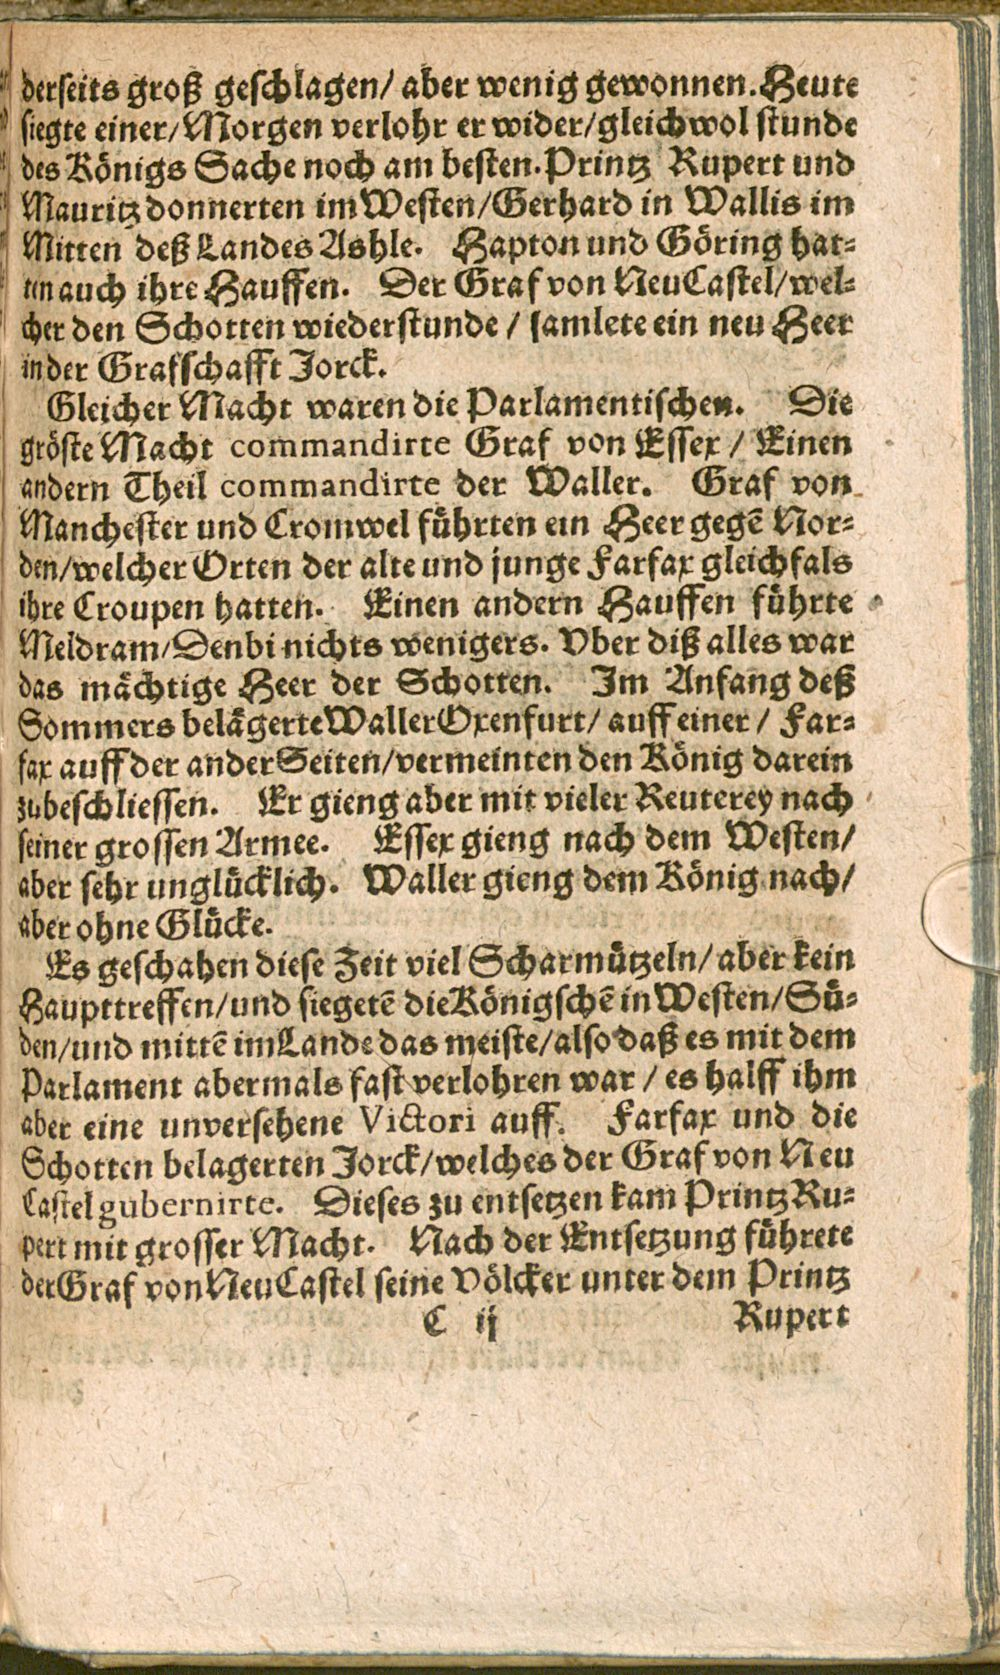 derseits groß geschlagen/ aber wenig gewonnen. Heute
siegte einer/ Morgen verlohr er wider/ gleichwol stunde
des Königs Sache noch am besten. Printz Rupert und
Mauritz donnerten im Westen/ Gerhard in Wallis im
Mitten deß Landes Ashle. Hapton und Göring hat-
ten auch ihre Hauffen. Der Graf von NeuCastel/ wel-
cher den Schotten wiederstunde / samlete ein neu Heer
in der Grafschafft Jorck.
Gleicher Macht waren die Parlamentischen. Die
gröste Macht commandirte Graf von Essex / Einen
andern Theil commandirte der Waller. Graf von
Manchester und Cromwel führten ein Heer gegē Nor-
den/ welcher Orten der alte und junge Farfax gleichfals
ihre Croupen hatten. Einen andern Hauffen führte
Meldram/ Denbi nichts wenigers. Vber diß alles war
das mächtige Heer der Schotten. Im Anfang deß
Sommers belägerte Waller Oxenfurt/ auff einer / Far-
fax auff der ander Seiten/ vermeinten den König darein
zubeschliessen. Er gieng aber mit vieler Reuterey nach
seiner grossen Armee. Essex gieng nach dem Westen/
aber sehr unglücklich. Waller gieng dem König nach/
aber ohne Glücke.
Es geschahen diese Zeit viel Scharmützeln/ aber kein
Haupttreffen/ und siegetē die Königschē in Westen/ Sü-
den/ und mittē im Lande das meiste/ also daß es mit dem
Parlament abermals fast verlohren war / es halff ihm
aber eine unversehene Victori auff. Farfax und die
Schotten belagerten Jorck/ welches der Graf von Neu
Castel gubernirte. Dieses zu entsetzen kam Printz Ru-
pert mit grosser Macht. Nach der Entsetzung führete
der Graf von NeuCastel seine Völcker unter dem Printz
C ij Rupert